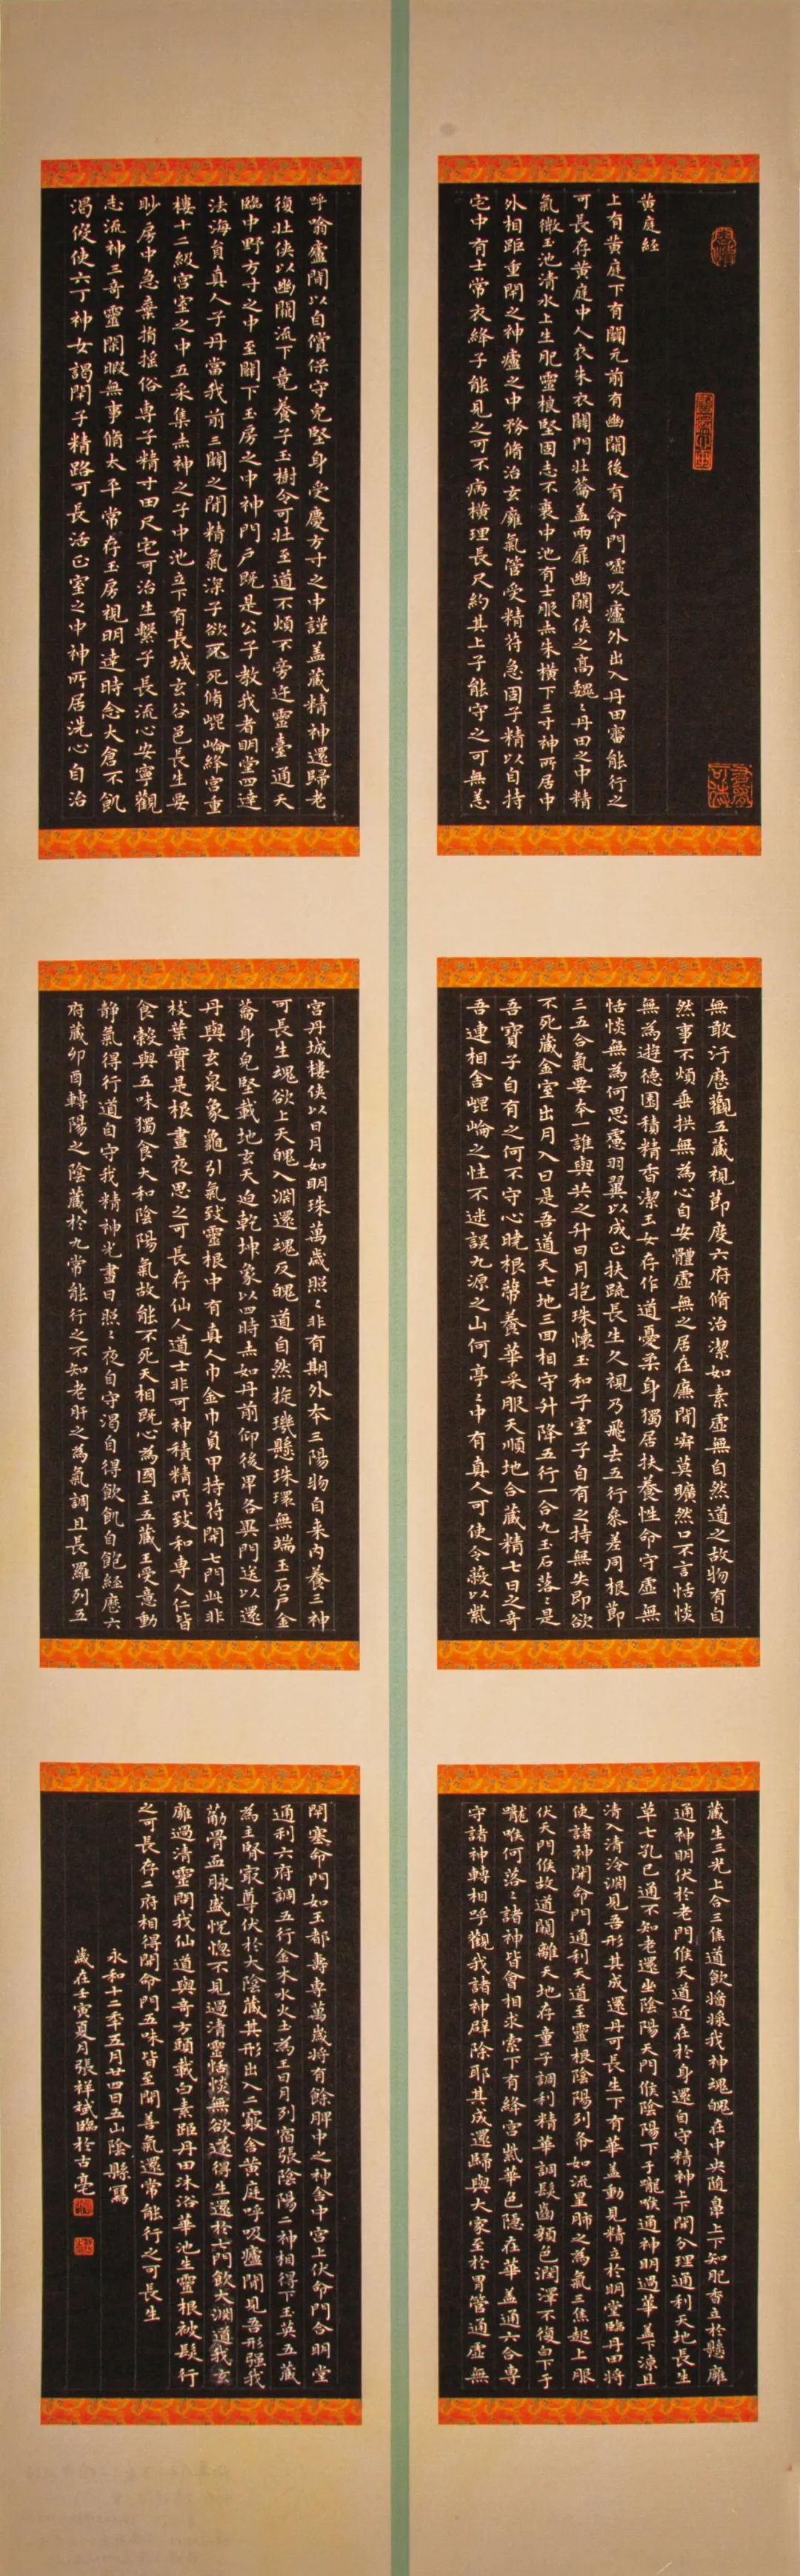 黄庭經
上有黄庭下有關元前有幽闕後有命門噓吸廬外出入丹田審能行之
可長存黄庭中人衣朱衣關門壮蘥蓋兩扉幽闕侠之高魏〻丹田之中精
氣微玉池清水上生肥靈根堅固志不衰中池有士服赤朱横下三寸神所居中
外相距重閇之神廬之中務脩治玄廱氣管受精符急固子精以自持
宅中有士常衣絳子能見之可不病横理長尺約其上子能守之可無恙
呼噏廬間以自償保守完堅身受慶方寸之中謹蓋藏精神還歸老
復壮侠以幽闕流下竟養子玉樹令可壮至道不煩不旁迕靈臺通天
臨中野方寸之中至關下玉房之中神門戶既是公子教我者明堂四達
法海員真人子丹當我前三關之間精氣深子欲不死脩崐崘絳宫重
樓十二級宫室之中五采集赤神之子中池立下有長城玄谷邑長生要
眇房中急棄捐搖俗専子精寸田尺宅可治生繫子長流心安寧觀
志流神三奇靈閑暇無事脩太平常存玉房視明達時念大倉不飢
渴役使六丁神女謁閇子精路可長活正室之中神所居洗心自治
無敢汙歷觀五藏視節度六府脩治潔如素虛無自然道之故物有自
然事不煩垂拱無為心自安體虛無之居在廉間寂莫曠然口不言恬惔
無為遊德園積精香潔玉女存作道憂柔身獨居扶養性命守虛無
恬惔無為何思慮羽翼以成正扶疏長生久視乃飛去五行參差同根節
三五合氣要本一誰與共之升日月抱珠懷玉和子室子自有之持無失即欲
不死藏金室出月入日是吾道天七地三回相守升降五行一合九玉石落〻是
吾寶子自有之何不守心曉根蔕養華采服天順地合藏精七日之奇
吾連相舍崐崘之性不迷誤九源之山何亭〻中有真人可使令蔽以紫
宫丹城樓侠以日月如明珠萬歲照〻非有期外本三陽物自来内養三神
可長生魂欲上天魄入淵還魂反魄道自然旋璣懸珠環無端玉石戶金
蘥身完堅載地玄天迫乾坤象以四時赤如丹前仰後卑各異門送以還
丹與玄泉象龜引氣致靈根中有真人巾金巾負甲持苻開七門此非
枝葉實是根晝夜思之可長存仙人道士非可神積精所致和専人仁皆
食穀與五味獨食大和陰陽氣故能不死天相既心為國主五藏王受意動
静氣得行道自守我精神光晝日照〻夜自守渴自得飲飢自飽經歷六
府藏卯酉轉陽之陰藏於九常能行之不知老肝之為氣調且長羅列五
藏生三光上合三焦道飲醬漿我神魂魄在中央随鼻上下知肥香立於懸廱
通神明伏於老門候天道近在於身還自守精神上下開分理通利天地長生
草七孔已通不知老還坐陰陽天門候陰陽下于嚨喉通神明過華蓋下清且
涼入清泠淵見吾形其成還丹可長生下有華蓋動見精立於明堂臨丹田将
使諸神開命門通利天道至靈根陰陽列布如流星肺之為氣三焦起上服
伏天門候故道闚離天地存童子調利精華調髮齒顏色潤澤不復白下于
嚨喉何落〻諸神皆會相求索下有絳宫紫華色隱在華蓋通六合専
守諸神轉相呼觀我諸神辟除耶其成還歸與大家至於胃管通虛無
閇塞命門如玉都壽専萬歲将有餘脾中之神舍中宫上伏命門合明堂
通利六府調五行金木水火土為王日月列宿張陰陽二神相得下玉英五藏
為主腎最尊伏於大陰藏其形出入二竅舍黄庭呼吸廬間見吾形强我
筋骨血脉盛恍惚不見過清靈恬惔無欲遂得生還於七門飲大淵道我玄
廱過清靈問我仙道與奇方頭載白素距丹田沐浴華池生靈根被髮行
之可長存二府相得開命門五味皆至開善氣還常能行之可長生
永和十二年五月廿四日五山陰縣寫
歲在壬寅夏月張祥斌臨於古亳